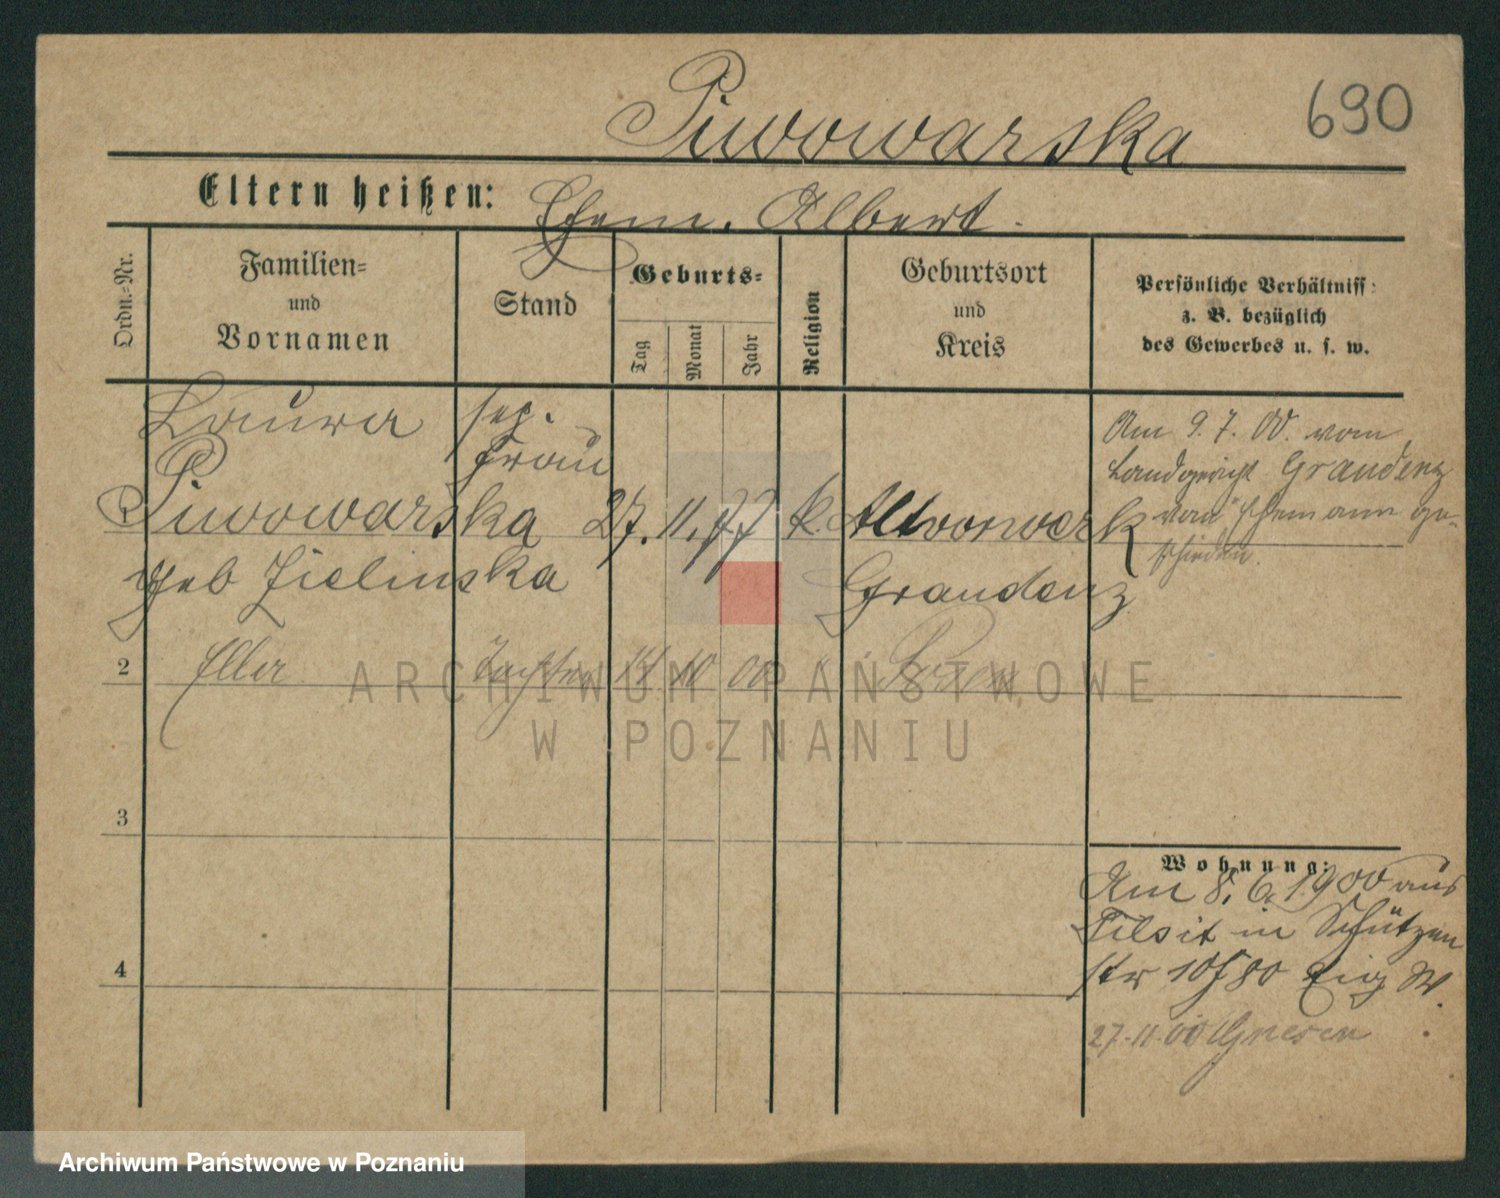 Piwowarska
690
Eltern heißen: Ehem. Albert.
Ordn.-Nr.
Familien-
und
Vornamen
Stand
Geburts-
Tag
Monat
Jahr
Religion
Geburtsort
und
Kreis
Persönliche Verhältniss:
z. B. bezüglich
des Gewerbes u. s. w.
Laura sep.
Frau
Piwowarska 27. 11. 77 k. Altvorwerk
geb Zielinska Graudenz
Am 9. 7. 00. vom
Landgericht Graudenz
von Ehemann ge-
schieden.
2 Tochter 10 00 Posen
3
4
Wohnung:
Am 8. 6. 1900 aus
Tilsit in Schützen
str Eig W.
27. 11. 00 Gnesen
ARCHIWUM PAŃSTWOWE
W POZNANIU
Archiwum Państwowe w Poznaniu